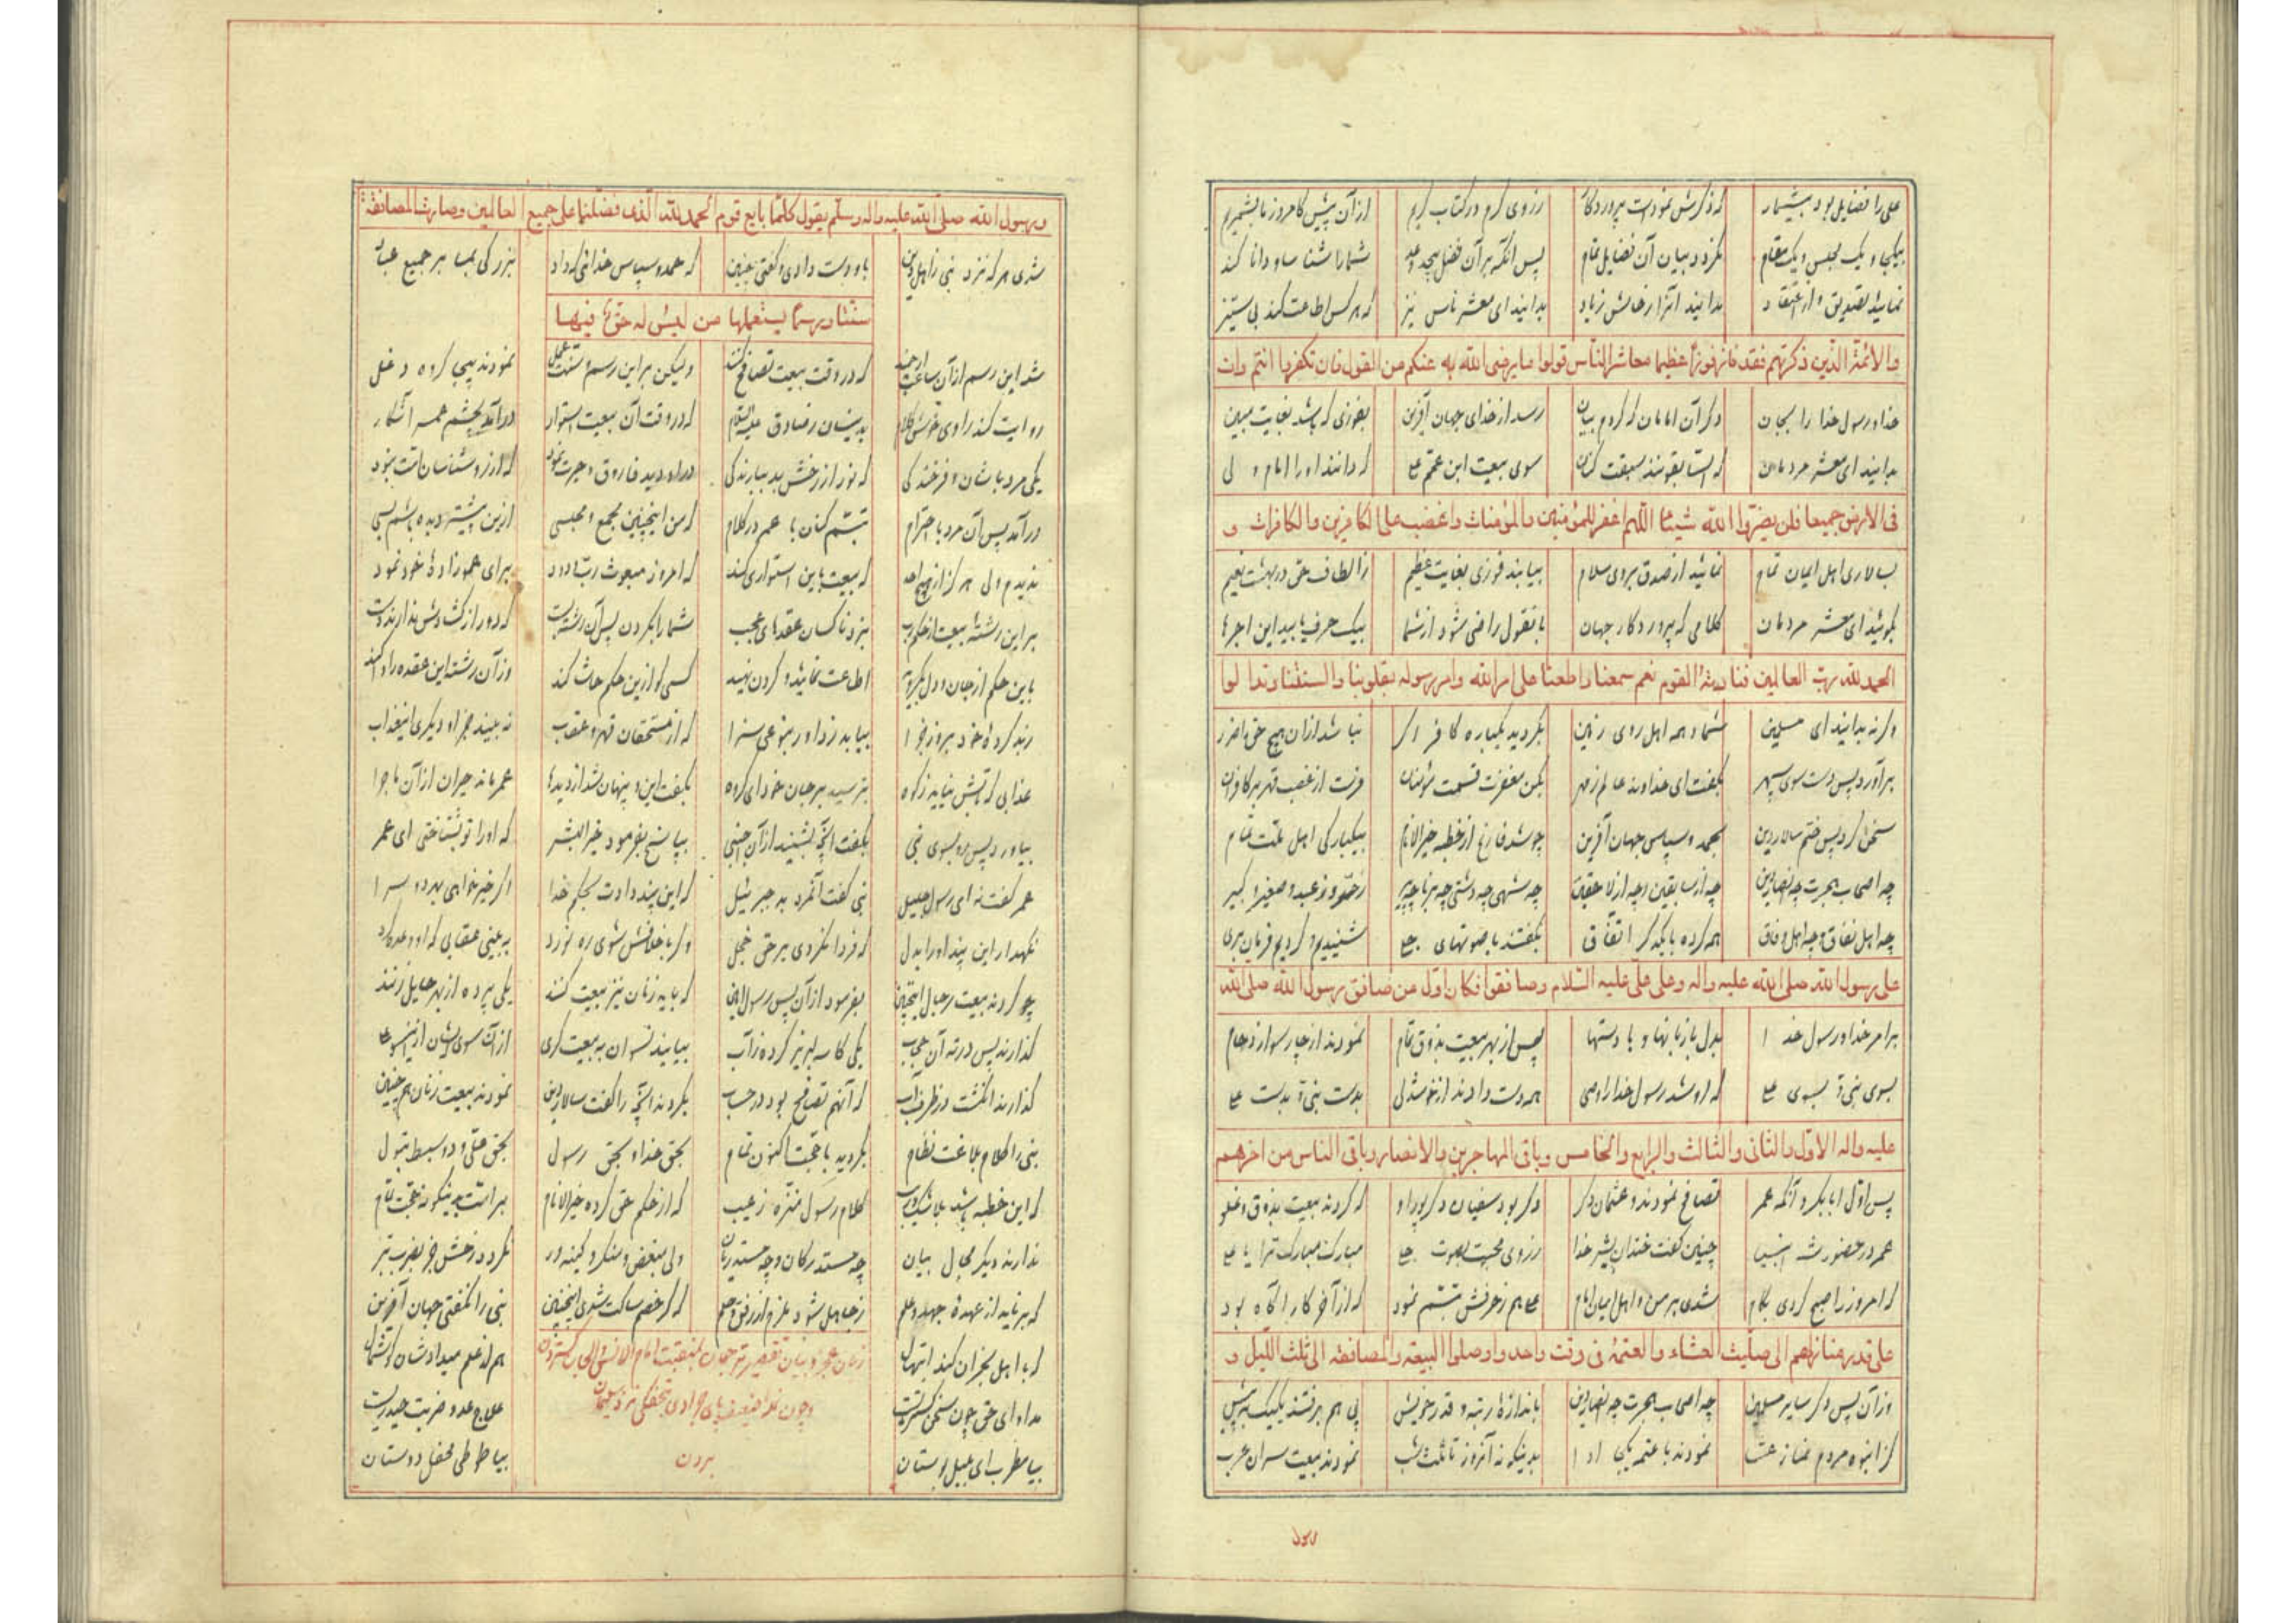 علی را فضایل بود بیشمار که ذکرش نمودست پروردگار ز روی کرم در کتاب کریم از آن پیش کامروز ما بشمریم
بیکجا و یک مجلس و یک مقام نگردد بیان آن فضایل تمام پس آنکه بر آن فضل بیحد و عد شمارا شناسا و دانا کند
نمایید تصدیق و از اعتقاد بدانید آنرا زیاد بدانید ای معشر ناس نیز که هر کس اطاعت کند بی ستیز
والائمة الذین ذکرتهم فقد فاز فوزا عظیما معاشر الناس قولوا ما یرضی الله به عنکم من القول فان تکفروا انتم و
خدا و رسول خدا را بجان دگر آن امامان که کردم بیان رسد از خدای جهان آفرین بفوزی که باشد بغایت مبین
بدانید ای معشر مردمان که سبقت کنان سوی بیعت ابن عمم علی که دانند او را امام و ولی
فی الارض جمیعا فلن یضروا الله شیئا اللهم اغفر للمؤمنین والمؤمنات واغضب علی الکافرین والکافرات و
بسالاری اهل ایمان تمام نمایند از صدق بر وی سلام بیابند فوزی بغایت عظیم ز الطاف حق در بهشت نعیم
بگوئید ای معشر مردمان کلامی که پروردگار جهان بآنقول راضی شود از شما بیک حرف یابید این اجرها
الحمد لله رب العالمین فنادته القوم نعم سمعنا واطعنا علی امر الله وامر رسوله بقلوبنا والسنتنا وتدالوا
وگرنه بدانید ای مسلمین شما و همه اهل روی زمین بگردید یکباره کافر اگر نباشد از آن هیچ حق را ضرر
برآورد پس دست سوی سپهر بگفت ای خداوند بکن مغفرت قسمت مؤمنان فرست از غضب قهر بر کافران
سخن کرد پس ختم سالار دین بحمد و سپاس جهان آفرین چو شد فارغ از خطبه خیر الانام بیکبارگی اهل ملت تمام
چه اصحاب هجرت چه انصار دین چه از سابقین و چه از لاحقین چه شهری چه دشتی چه برنا چه پیر و عبد و صغیر و کبیر
چه اهل نفاق و چه اهل وفاق همه کرده با یکدگر اتفاق بگفتند با صوتهای جلی شنیدیم و کردیم فرمان بری
علی رسول الله صلی الله علیه واله وعلی علی علیه السلام وصافقوا فکان اول من صافق رسول الله صلی الله
بر امر خدا و رسول خدا بدل با زبانها و با دستها پس از بهر بیعت بذوق تمام نمودند از چار سو ازدحام
بسوی نبی و بسوی علی که او شد رسول خدا را وصی همه دست دادند از خوشدلی بدست نبی و بدست علی
علیه واله الاول والثانی والثالث والرابع والخامس وباقی المهاجرین والانصار وباقی الناس من اخرهم
پس اول ابابکر و آنگه عمر تصافح نمودند و عثمان دگر دگر بود سفیان که کردند بیعت بذوق و غلو
عمر در حضور شه انبیا چنین گفت خندان بشیر خدا ز روی محبت بصوت جلی مبارک مبارک ترا یا علی
که امروز را صبح کردی بکام شدی بر من و اهل ایمان امام علی هم ز حرفش تبسم نمود که از آخر کار آگاه بود
علی قدر منازلهم الی صلیت العشاء والعتمة فی وقت واحد واوصلوا البیعة والمصافقة الی ثلث اللیل و
وز آن پس دگر سایر مسلمین چه اصحاب هجرت چه انصار دین باندازهٔ رتبه و قدر خویش پی هم برفتند یکیک به پیش
کز انبوه مردم نماز عشا نمودند با عتمه یکجا ادا بدینگونه آنروز تا ثلث شب نمودند بیعت سران عرب
رسول
ورسول الله صلی الله علیه واله وسلم یقول کلما بایع قوم الحمد لله الذی فضلنا علی جمیع العالمین وصارت المصافقة
شدی هر که نزد نبی ز اهل دین باو دست دادی و گفتی چنین که حمد و سپاس خدائی که داد بزرگی بما بر جمیع عباد
سنة ورسما یستعملها من لیس له حق فیها
شد این رسم از آن ساعت که در وقت بیعت تصافح کنند ولیکن بر این رسم و سنت عمل نمودند بیجا گروه دغل
روایت کند راوی خوش کلام بدینسان ز صادق علیه السلام که در وقت آن بیعت استوار درآمد بچشم همه آشکار
یکی مرد با شان و فرخندگی که نور از رخش بد ببارندگی در او دید فاروق و حیرت نمود که از روشناسان امت نبود
درآمد پس آن مرد با احترام تبسم کنان با عمر در کلام که من اینچنین مجمع و مجلسی ازین پیشتر دیده باشم بسی
ندیدم ولی هرگز از هیچ احد که بیعت باین استواری کند که امروز مبعوث رب ودود برای عموزادهٔ خود نمود
بر این رشته بیعت از بزد ناکسان عقدهای عجب شما را بگردن پس آن رشته بست که دور از گشادش ندارند دست
باین حکم از جان و دل بگروید اطاعت نمایید و گردن نهید کسی کو ازین حکم حاشا کند وز آن رشته این عقده را وا کند
رسد کردهٔ خود بروز جزا بیابد ز داور بنوعی سزا که از مستحقان قهر و عقاب نه بیند جز او دیگری این عذاب
عذابی که تابش نیابد ز کوه بترسید بر جان خود ای گروه بگفت این و پنهان شد از دیدها عمر ماند حیران از آن ماجرا
بیاورد پس رو بسوی نبی بگفت آنچه بشنید از آن اجنبی بپاسخ بفرمود خیر البشر که او را تو نشناختی ای عمر
عمر گفت نه ای رسول جلیل نبی گفت آنمرد بد جبرئیل که این پند دادت بحکم خدا اگر خیر خواهی بهر دو سرا
نگهدار این پند او را بدل که فردا نگردی بر حق خجل وگر با خلافش شوی ره نورد ببینی عقابی که او وعده کرد
چو کردند بیعت رجال اینچنین بفرمود از آن پس رسول امین که باید زنان نیز بیعت کنند یکی پرده از بهر حایل زنند
گذارند پس در ته آن حجاب یکی کاسه لبریز کرده ز آب بیایند نسوان به بیعت گری از آن سوی ایشان ازینسو علی
گذارند انگشت در ظرف آب که آنهم تصافح بود در حساب بکردند آنچه را گفت سالار دین نمودند بیعت زنان هم چنین
نبی را کلام بلاغت نظام بگردید با حجت اکنون تمام بحق خدا و بحق رسول بحق علی و دو سبط بتول
که این خطبه باشد بلا شک و ریب کلام رسول منزه ز عیب که از حکم حق کرده خیر الانام بر امت بدینگونه حجت تمام
ندارند دیگر مجال بیان ولی مبغض و منکر و کینه ور نگردد ز خشش جز بضرب تبر
که برناید از عهدهٔ جهل و علم ز جاهل شود ملزم از رفق و حلم که گر خصم ساکت شدی اینچنین نبی را نگفتی جهان آفرین
که با اهل نجران کند ابتهال زبان عجز و بیان تقصیر ترجمان بمنقبت امام الانس والجان گستردن هم از علم میدادشان گوشمال
مداوای حق چون سخن گستریست و چون نملهٔ ضعیف پای جرادی بتحفگی نزد سلیمان علاج عدو ضربت حیدریست
بیا مطرب ای عبل بوستان بردن بیا طوطی محفل دوستان